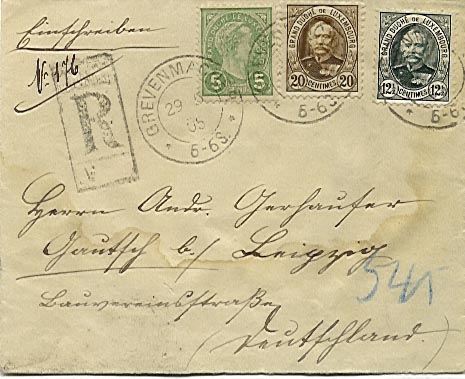 Einschreiben
No 176
R
5 5
GRAND DUCHÉ DE LUXEMBOURG
20 20
CENTIMES
GRAND DUCHÉ DE LUXEMBOURG
12½ 12½
CENTIMES
GREVENMA
29
05
* 5-6S. *
5-6S.
Herrn Andr. Gerhaufer
Gautsch b./ Leipzig
545
Bauvereinsstraße
(Deutschland.)